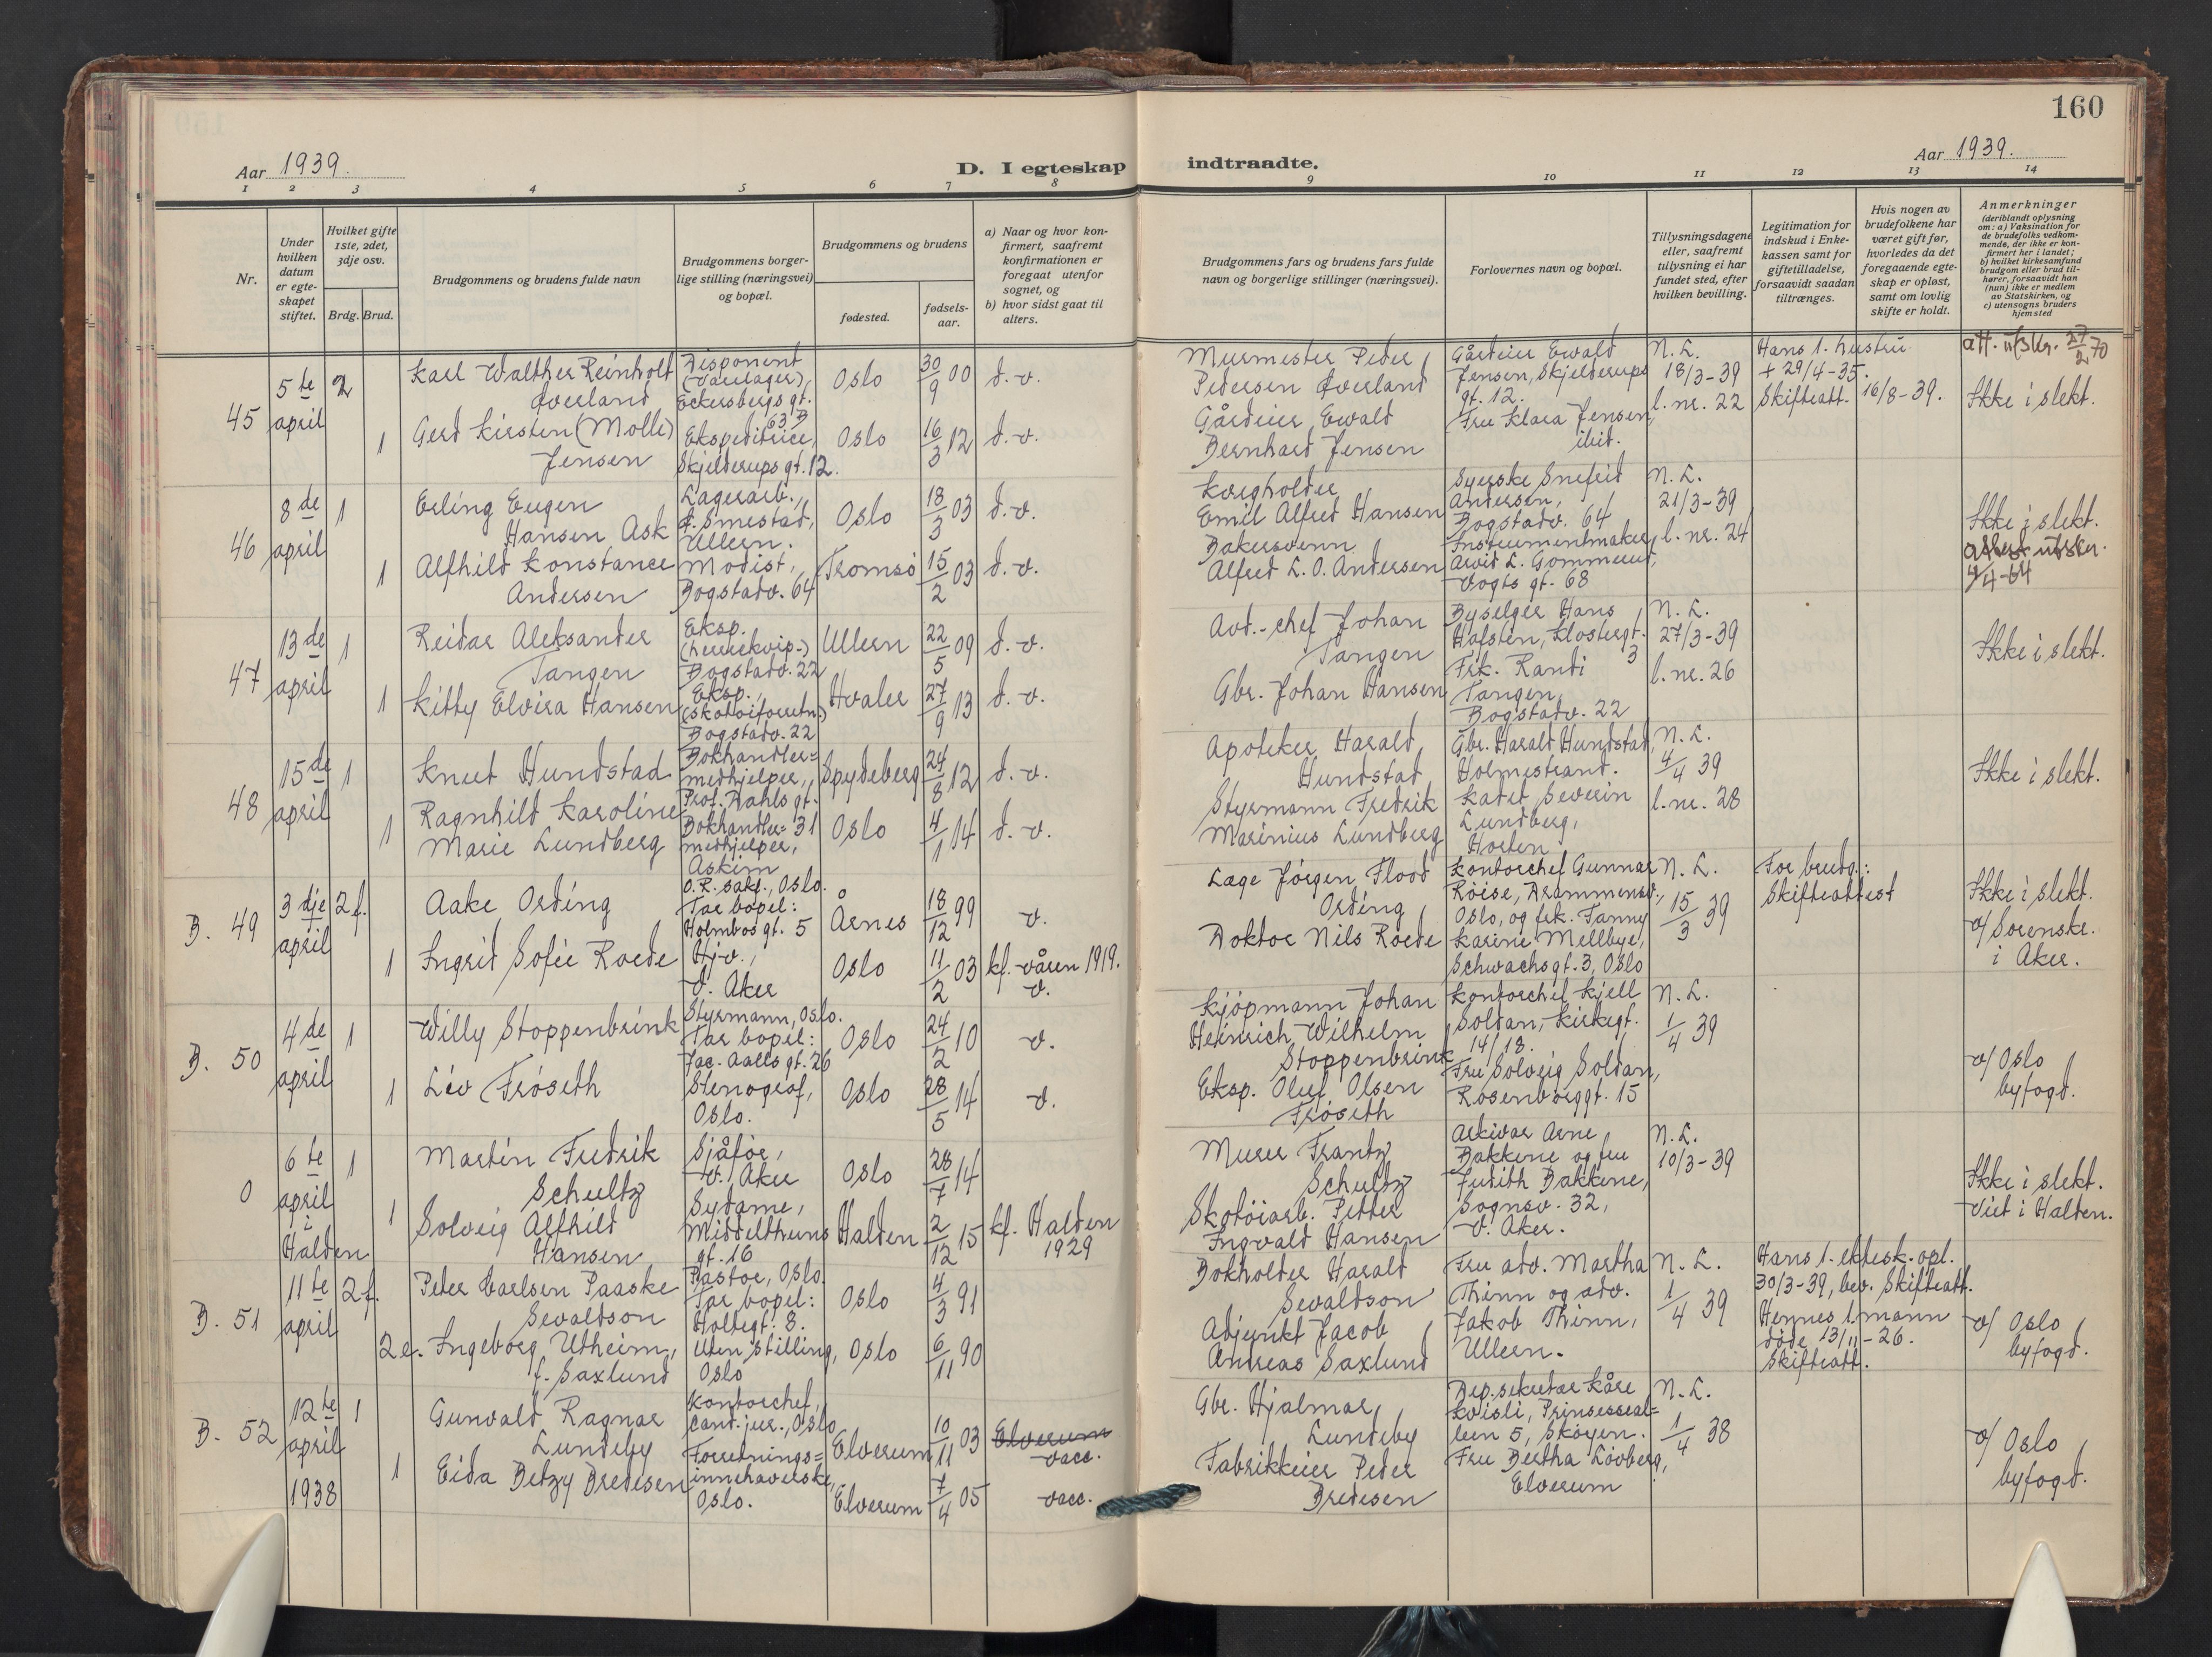 160
Aar 1939.
D. I egteskap indtraadte.
Aar 1939.
1 2 3 4 5 6 7 8 9 10 11 12 13 14
Nr.
Under hvilken datum er egteskapet stiftet.
Hvilket gifte 1ste, 2det, 3dje osv.
Brdg. Brud.
Brudgommens og brudens fulde navn
Brudgommens borgerlige stilling (næringsvei) og bopæl.
Brudgommens og brudens
fødested.
fødselsaar.
a) Naar og hvor konfirmert, saafremt konfirmationen er foregaat utenfor sognet, og
b) hvor sidst gaat til alters.
Brudgommens fars og brudens fars fulde navn og borgerlige stillinger (næringsvei).
Forlovernes navn og bopæl.
Tillysningsdagene eller, saafremt tillysning ei har fundet sted, efter hvilken bevilling.
Legitimation for indskud i Enkekassen samt for giftetilladelse, forsaavidt saadan tiltrænges.
Hvis nogen av brudefolkene har været gift før, hvorledes da det foregaaende egteskap er opløst, samt om lovlig skifte er holdt.
Anmerkninger
(deriblandt oplysning om: a) Vaksination for de brudefolks vedkommende, der ikke er konfirmert her i landet; b) hvilket kirkesamfund brudgom eller brud tilhører, forsaavidt han (hun) ikke er medlem av Statskirken, og c) utensogns bruders hjemsted
45
5te april
2
Karl Walther Reinholt
Øverland
Disponent
(Varelager),
Eckersbergs gt.
63 B
Oslo
30/9 00
d. v.
Murmester Peder
Pedersen Øverland
Gårdeier Ewald
Jensen, Skjelderups
gt. 12.
N. L.
18/3-39
l. nr. 22
Hans 1. hustru
+ 29/4-35.
Skifteatt. 16/8-39.
att. utskr. 27/2 70
Ikke i slekt.
1
Gerd Kirsten (Molle)
Jensen
Ekspeditrice,
Skjelderups gt. 12.
Oslo
16/3 12
d. v.
Gårdeier Ewald
Bernhard Jensen
Fru Klara Jensen,
ibid.
46
8de april
1
Erling Eugen
Hansen Ask
Lagerarb.,
Ø. Smestad,
Ullern.
Oslo
18/3 03
d. v.
Emil Alfred Hansen
Syerske Snefrid
Andersen,
Bogstadv. 64
N. L.
21/3-39
l. nr. 24
Ikke i slekt.
attest utskr.
4-64
1
Alfhild Konstance
Andersen
Modist,
Bogstadv. 64
Tromsø
15/2 03
d. v.
Bakersvenn
Alfred L. O. Andersen
Instrumentmaker
Arvid L. Gommerud,
Vogts gt. 68
47
13de april
1
Reidar Aleksander
Tangen
Eksp.
(herreekvip.)
Bogstadv. 22
Ullern
22/5 09
d. v.
Avd.-chef Johan
Tangen
Byselger Hans
Hafsten, Klostergt.
3
N. L.
27/3-39
l. nr. 26
Ikke i slekt.
1
Kitty Elvira Hansen
Eksp.,
(skotøiforretn.)
Bogstadv. 22
Hvaler
27/9 13
d. v.
Gbr. Johan Hansen
Frk. Randi
Tangen,
Bogstadv. 22
48
15de april
1
Knut Hundstad
Bokhandler=
medhjelper,
Prof. Dahls gt.
31
Spydeberg
24/8 12
d. v.
Apoteker Harald
Hundstad
Gbr. Harald Hundstad,
Holmestrand.
N. L.
4/4 39
l. nr. 28
Ikke i slekt.
1
Ragnhild Karoline
Marie Lundberg
Bokhandler=
medhjelper,
Askim
Oslo
4/1 14
d. v.
Styrmann Fredrik
Marinius Lundberg
Kadet Severin
Lundberg,
Horten
B. 49
3dje april
2 f.
Aake Ording
O. R. sakf., Oslo.
Før bopel:
Holmbos gt. 5
Årnes
18/12 99
v.
Læge Jörgen Flood
Ording
Kontorchef Gunnar
Röise, Drammensv.,
Oslo, og frk. Fanny
Karine Mellbye,
Schwachsgt. 3, Oslo
N. L.
15/3 39
For brudg.:
Skifteattest
Ikke i slekt.
v/ Sorenskr.
i Aker.
1
Ingrid Sofie Roede
Hjv.,
V. Aker
Oslo
11/2 03
kf. våren 1919.
v.
Doktor Nils Roede
B. 50
4de april
1
Willy Stoppenbrink
Styrmann, Oslo.
Før bopel:
Jac. Aalls gt. 26
Oslo
24/2 10
v.
Kjøpmann Johan
Heinrich Wilhelm
Stoppenbrink
Kontorchef Kjell
Soldan, Kirkegt.
14/18.
N. L.
1/4 39
v/ Oslo
byfogd.
1
Liv Frøseth
Stenograf,
Oslo.
Oslo
28/5 14
v.
Eksp. Oluf Olsen
Frøseth
Fru Solveig Soldan,
Rosenborggt. 15
0
6te april
i Halden
1
Martin Fredrik
Schultz
Sjåfør,
V. Aker
Oslo
28/7 14
Murer Frantz
Schultz
Arkivar Arne
Bakkene og fru
Judith Bakkene,
Sognsv. 32,
V. Aker.
N. L.
10/3-39
Ikke i slekt.
Viet i Halden.
1
Solveig Alfhild
Hansen
Sydame,
Middelthuns
gt. 16
Halden
2/12 15
kf. Halden
1929
Skotøiarb. Petter
Ingvald Hansen
B. 51
11te april
2 f.
Peter Carlsen Paaske
Sevaldson
Pastor, Oslo.
Før bopel:
Holtegt. 8.
Oslo
4/3 91
Bokholder Harald
Sevaldson
Fru adv. Martha
Thinn og adv.
Jakob Thinn,
Ullern.
N. L.
1/4 39
Hans 1. ektesk. opl.
30/3-39, bev. Skifteatt.
Hennes 1. mann
døde 13/11-26.
Skifteatt.
v/ Oslo
byfogd.
2 e.
Ingeborg Utheim,
f. Saxlund
Uten stilling,
Oslo
Oslo
6/11 90
Adjunkt Jacob
Andreas Saxlund
B. 52
12te april
1938
1
Gunvald Ragnar
Lundeby
Kontorchef,
cand. jur., Oslo
Elverum
10/11 03
Elverum
vacc.
Gbr. Hjalmar
Lundeby
Dep. sekretær Kåre
Kvisli, Prinsesseal=
leen 5, Skøyen.
N. L.
1/4 38
v/ Oslo
byfogd.
1
Eida Betzy Bredesen
Forretnings=
innehaverske,
Oslo.
Elverum
7/4 05
vacc.
Fabrikkeier Peder
Bredesen
Fru Bertha Lövberg,
Elverum